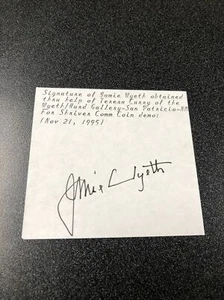 Signature of Jamie Wyeth obtained
thru help of Teresa Curry of the
Wyeth/Hurd Gallery-San Patricio-NM
For Shriver Comm Coin demo:
(Nov 21, 1995)
Jamie Wyeth